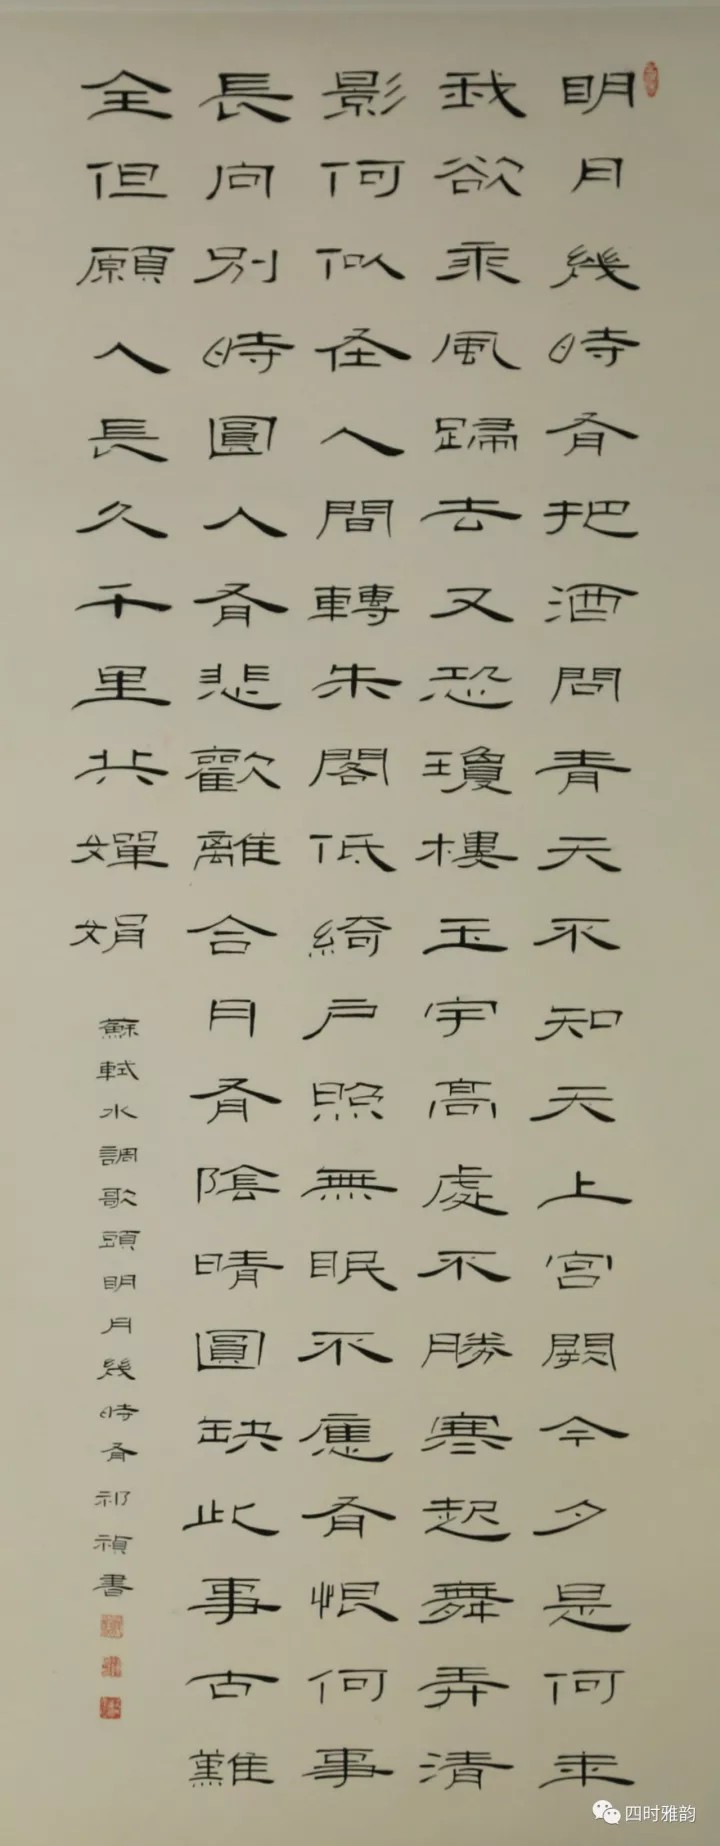 明月幾時有把酒問青天不知天上宮闕今夕是何年
我欲乘風歸去又恐瓊樓玉宇高處不勝寒起舞弄清
影何似在人間轉朱閣低綺戶照無眠不應有恨何事
長向別時圓人有悲歡離合月有陰晴圓缺此事古難
全但願人長久千里共嬋娟
蘇軾水調歌頭明月幾時有祁禎書
四时雅韵